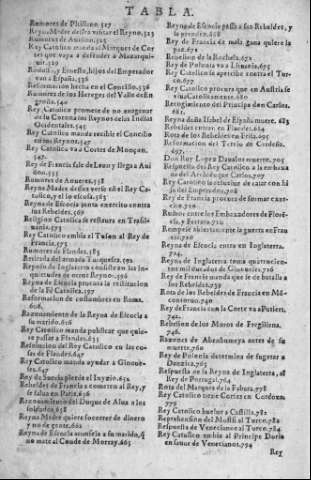 TABLA.
Rumores de Philiino. 527
Reyna Madre dessea visitar el Reyno. 523
Rumores de Auiñon. 525
Rey Catolico manda al Marques de
vaya a defender a
quir. 527
Rodulfo, y Ernesto, hijos del Emperador
van a España. 528
Reformacion hecha en el Concilio. 536
Rumores de los Hereges del Valle
540
Rey Catolico promete de no enagenar
de la Corona los Reynos de las Indias
Ocidentales. 543
Rey Catolico manda recibir el Concilio
en sus Reynos. 547
Rey Catolico va a Cortes de Monçon.
547.
Rey de Francia sale de Leon y llega a
ñon. 555
Rumores de Anueres. 558
Reyna Madre dessea verse con el Rey Ca-
tolico, y el lo escusa. 565
Reyna de Escocia junta exercito contra
los Rebeldes. 569
Religion Catolica se restaura en Trasil-
uania. 573
Rey Catolico embia el Tuson al Rey de
Francia. 575
Rumores de Flandes. 585
Retirada del armada Turquesca. 592
Reyno de Inglaterra
quietudes de otros Reynos. 596
Reyna de Escocia procura la restitucion
de la Fè Catolica. 597
Reformacion de costumbres en Roma.
608.
Razonamiento de la Reyna de Escocia a
su marido. 616
Rey Catolico manda publicar que quie-
re passar a Flandes. 643
Resolucion del Rey Catolico en las co-
sas de Flandes. 647
Rey Catolico manda ayudar a Ginoue-
ses. 647
Rey de Suecia pierde el juyzio. 652
Rebeldes de Francia acometen al Rey, y
se salua en Paris. 656
Razonamiento del Duque de Alua a los
soldados. 658
Reyna Madre quiere socorrer de dinero
y no de gente. 661
Reyna de Escocia aconseja a su marido, q̃
no mate al Conde de Mor 663
Reyna de Escocia passa a sus Rebeldes, y
la prenden. 668
Rey de Francia de mala gana quiere la
paz. 671
Rebelion de la Rochela. 672
Rey de Polonia va a Liuonia. 675
Rey Catolico se apercibe contra el Tur-
co. 677
Rey Catolico procura que en Austria se
viua Catolicamente. 680
Recogimiento del Principe don Carlos.
681.
Reyna doña Isabel de España muere. 683
Rebeldes entran en Flandes. 684
Rota de los Rebeldes en Frisa. 695
Reformacion del Tercio de Cerdeña.
697.
Don Ruy Lopez Daualos muere. 705
Respuesta del Rey Catolico a la embaxa-
da del Archiduque Carlos. 707
Rey Catolico se escusa de casar con hi-
ja del Emperador. 708
Rey de Francia procura de formar exer-
cito. 710
Ruydo entre los Embaxadores de Floren-
cia, y Ferrara. 720
Rompese abiertamente la guerra en Fran-
cia. 720
Reyna de Escocia, entra en Inglaterra.
724.
Reyna de Inglaterra toma quatrocien-
tos mil ducados de Ginoueses. 726
Rey de Francia manda que se de batalla a
los Rebeldes. 739
Rota de los Rebeldes de Francia en Mō-
contorno. 740
Rey de Francia va con la Corte a Putiers.
742.
Rebelion de los Moros de Fregiliana.
746.
Rumores de Abenhumeya antes de su
muerte. 760
Rey de Polonia determina de sugetar a
Danzica. 765
Respuesta de la Reyna de Inglaterra, al
Rey de Portugal. 764
Rota del Marques de la Fabara. 778
Rey Catolico tiene Cortes en Cordoua.
772.
Rey Catolico buelue a Castilla. 782
Reprehension del Mosti al Turco. 782
Respuesta de Venecianos al Turco. 784
Rey Catolico embia al Principe Doria
en fauor de Venecianos. 794
Rey